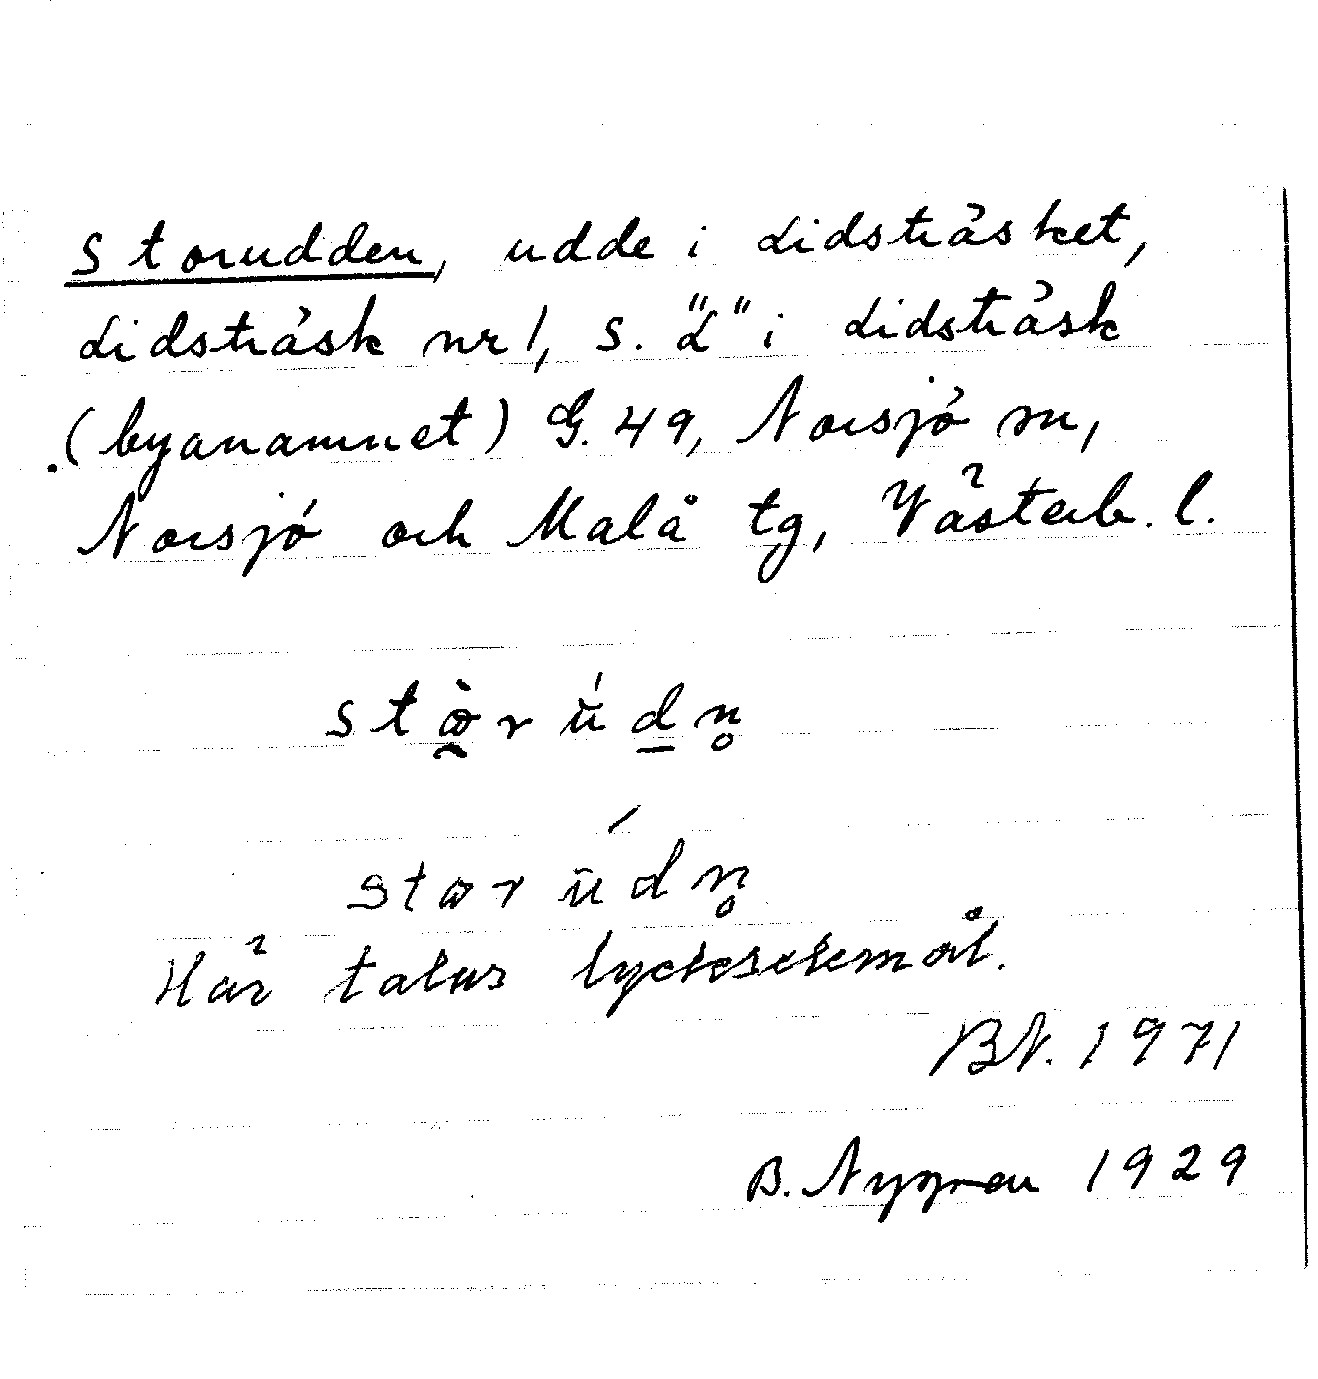 Storudden, udde i Lidsträsket,
Lidsträsk nr 1, S. "L" i Lidsträsk
(byanamnet) G. 49, Norsjö sn,
Norsjö och Malå tg, Västerb. l.
Här talas lycksekemål.
BN. 1971
B. Nygren 1929